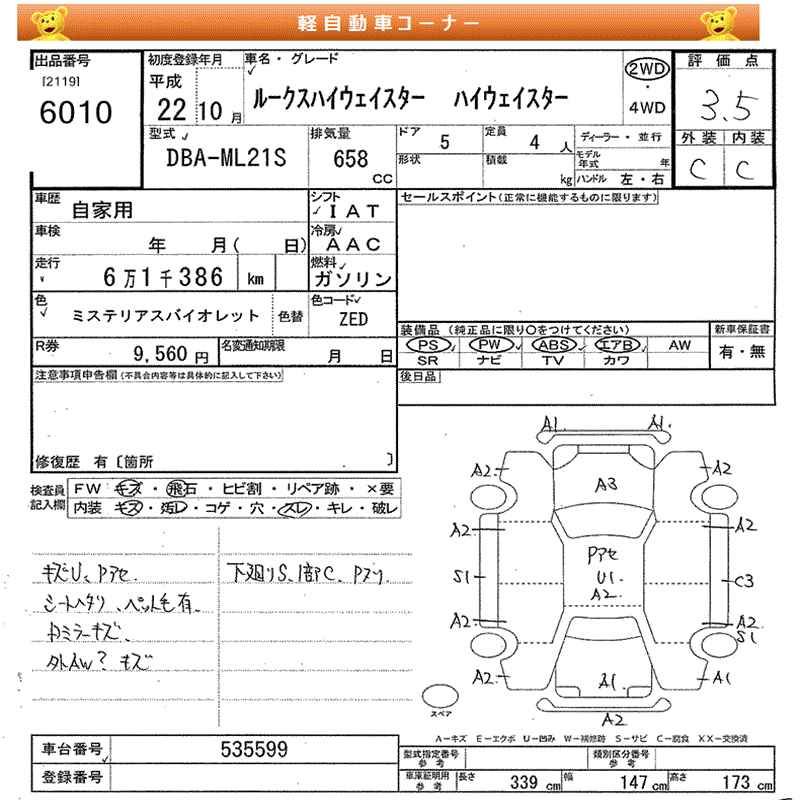 軽自動車コーナー
出品番号
[2119]
6010
初度登録年月
平成
22 10月
車名・グレード
ルークスハイウェイスター ハイウェイスター
2WD
・
4WD
評価点
3.5
外装 内装
C C
型式
DBA-ML21S
排気量
658
CC
ドア 5
定員 4 人
ディーラー・並行
形状
積載 kg
モデル年式 年
ハンドル 左・右
車歴
自家用
シフト
IAT
車検
年 月( 日)
冷房
AAC
走行
6万1千386 km
燃料
ガソリン
色
ミステリアスバイオレット
色替
色コード
ZED
R券
9,560円
名変通知期限
月 日
セールスポイント(正常に機能するものに限ります)
装備品(純正品に限り○をつけてください)
新車保証書
PS PW ABS エアB AW
SR ナビ TV カワ
有・無
後日品
注意事項申告欄(不具合内容等は具体的に記入して下さい)
修復歴 有〔箇所 〕
検査員
記入欄
FW キズ・飛石・ヒビ割・リペア跡・×要
内装 キズ・汚レ・コゲ・穴・スレ・キレ・破レ
キズU、Pアセ.
シートヘタリ、ペット毛有.
カミラーキズ.
外AW? キズ
下廻りS、1部C、Pアリ.
A1. A1.
A2 A2
A3
A2 A2
Pアセ
U1.
A2
S1 C3
A2 A2
S1
A2 A1. A1
A2
スペア
A−キズ E−エクボ U−凹み W−補修跡 S−サビ C−腐食 XX−交換済
車台番号
535599
登録番号
型式指定番号
参考
類別区分番号
参考
車庫証明用
参考
長さ 339 cm
幅 147 cm
高さ 173 cm